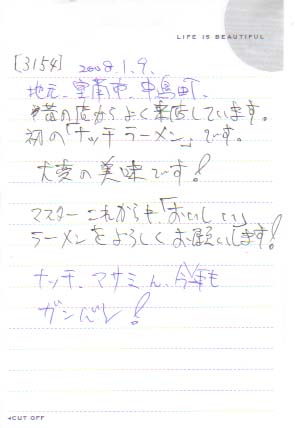 LIFE IS BEAUTIFUL
[3154] 2008.1.9.
地元、室蘭市、中島町、
昔の店からよく来店しています。
初の「ナッチラーメン」です。
大変の美味です!
マスターこれからも「おいしい」
ラーメンをよろしくお願いします!
ナッチ、マサミん、今年も
ガンバレ!
◂CUT OFF